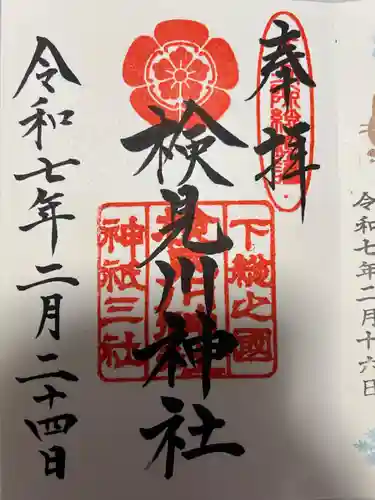 奉拝
検見川神社
下総之国
神祇三社
令和七年二月二十四日
令和七年二月十六日